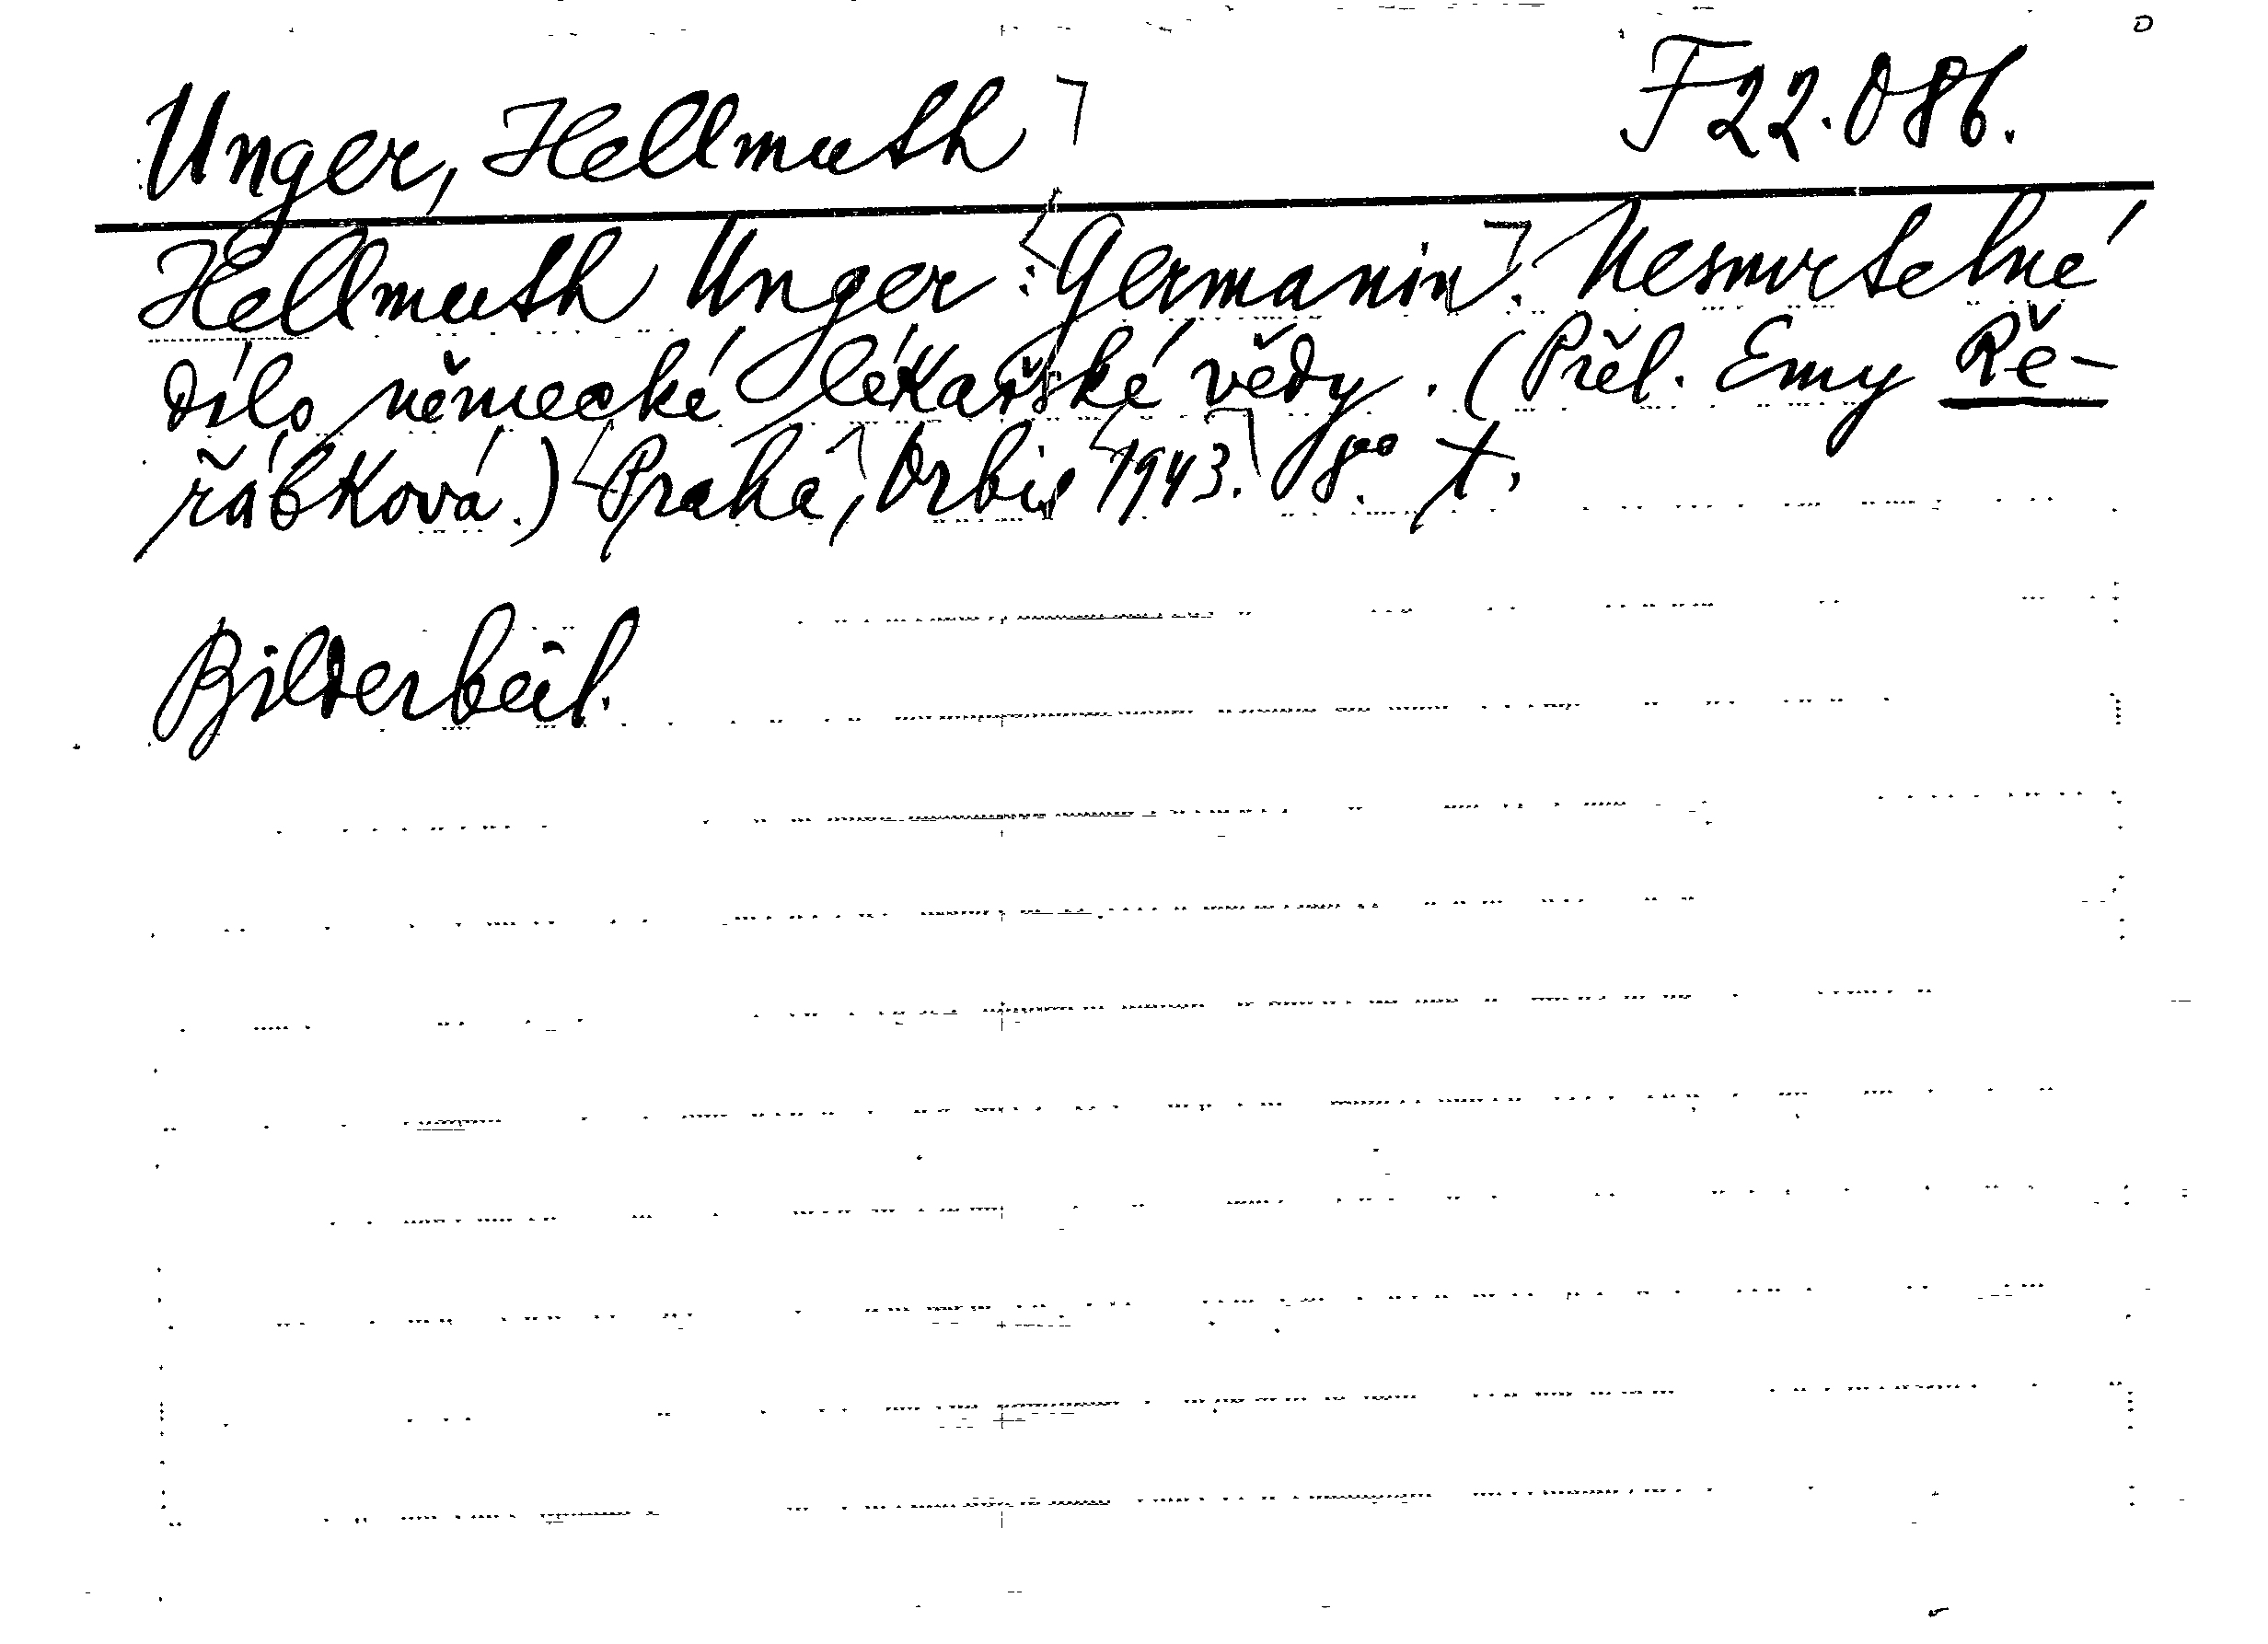 Unger, Hellmuth F 22.086.
Hellmuth Unger: Germanin. Nesmrtelné
dílo německé lékařské vědy. (Přel. Emy Ře-
řábková.) Praha, Orbis 1943. 8°. t.
Bilderbeil.